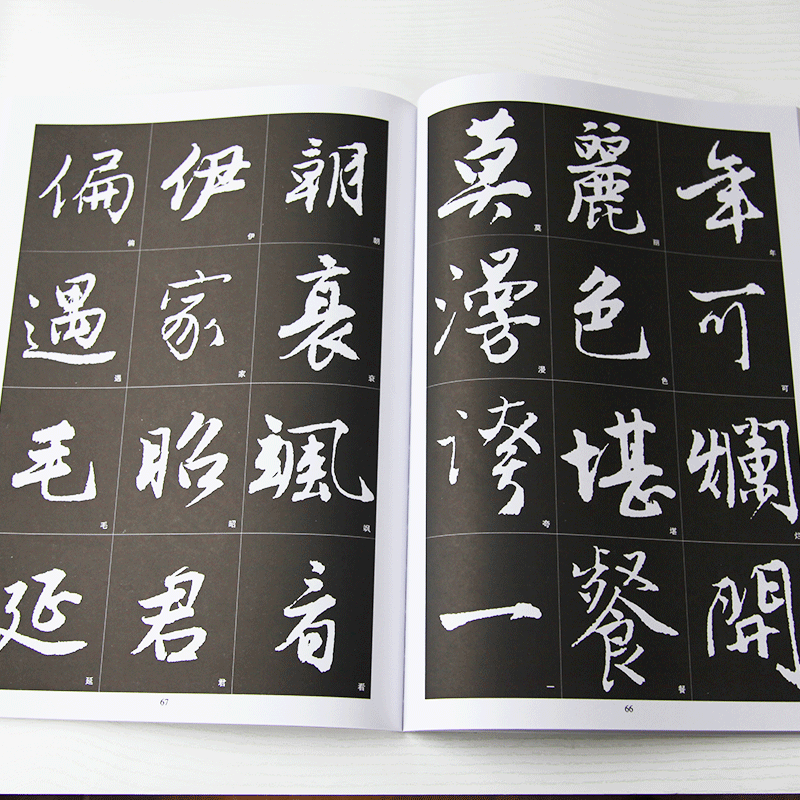 年可爛開
年可烂
麗色堪餐
丽色堪餐
莫漫誇一
莫漫夸一
66
朝衰颯看
朝衰飒看
伊家昭君
伊家昭君
偏遇毛延
偏遇毛延
67